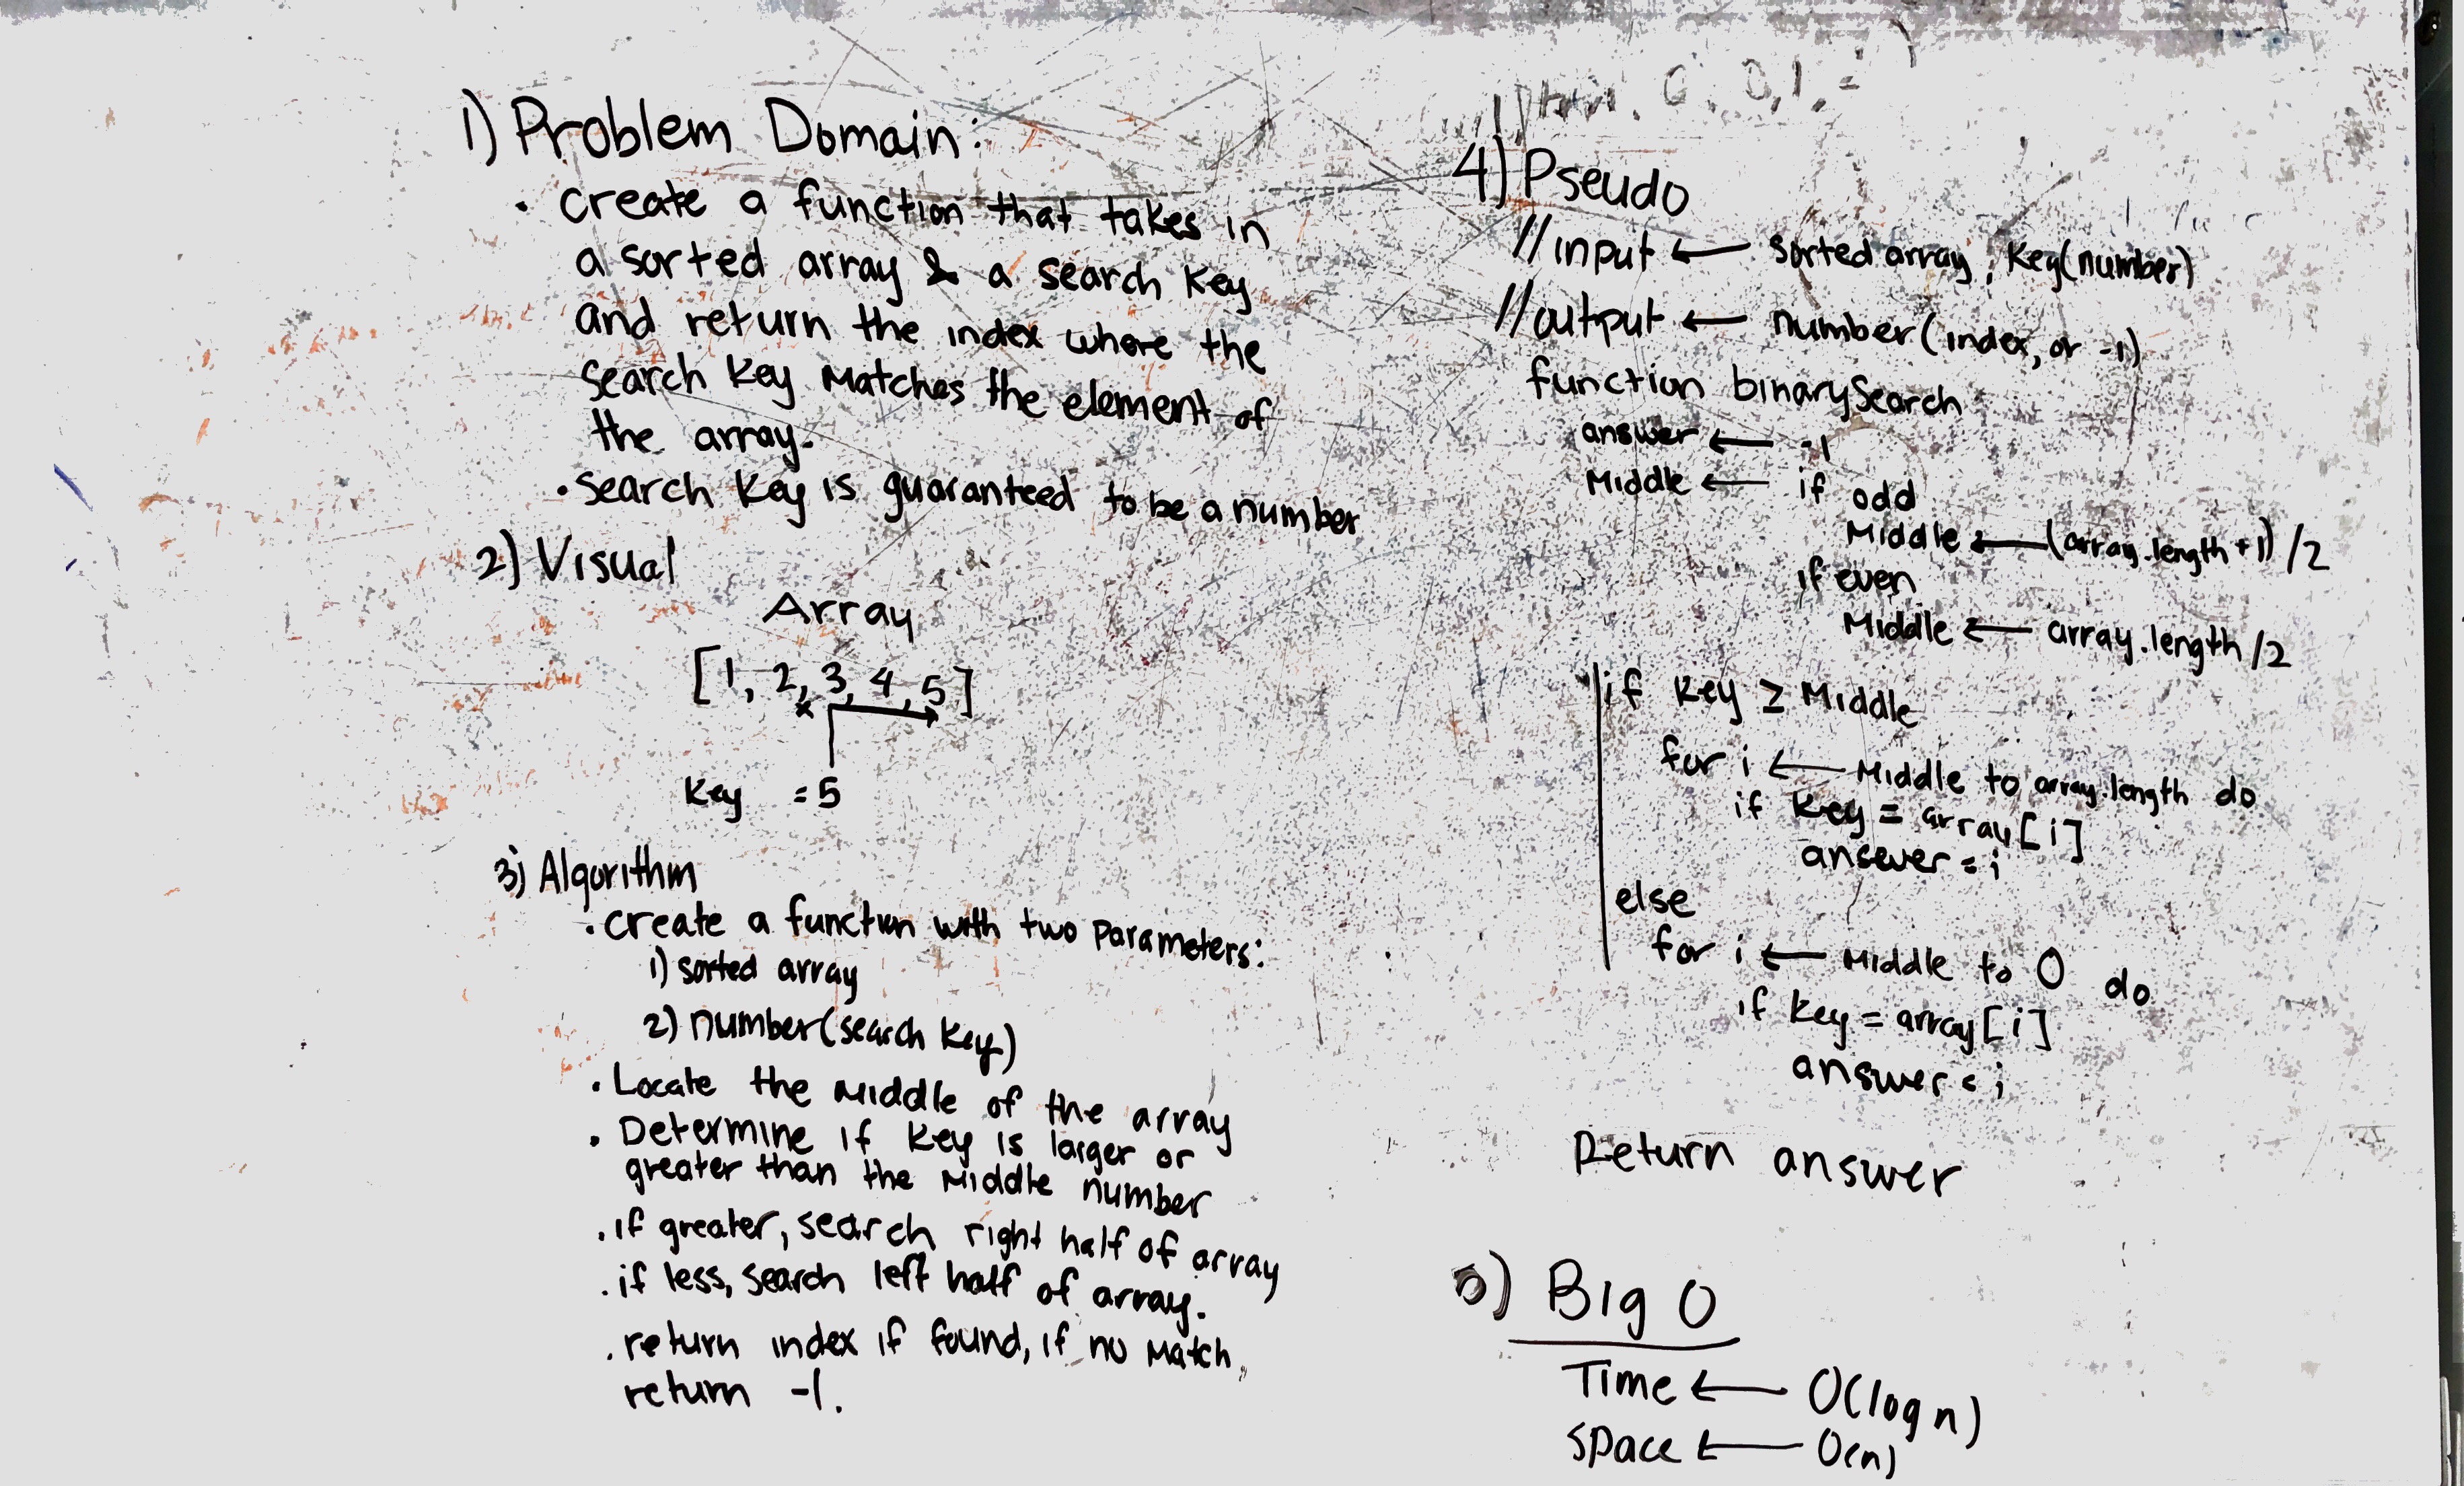 1) Problem Domain:
• Create a function that takes in
a sorted array & a search key
and return the index where the
search key matches the element of
the array.
• Search key is guaranteed to be a number
2) Visual
Array
[1, 2, 3, 4, 5]
x
key = 5
3) Algorithm
• Create a function with two parameters:
1) sorted array
2) number (search key)
• Locate the middle of the array
• Determine if key is larger or
greater than the middle number
• if greater, search right half of array
• if less, search left half of array.
• return index if found, if no match,
return -1.
4) Pseudo
// input ← sorted array, key(number)
// output ← number (index, or -1)
function binarySearch
answer ← -1
Middle ← if odd
Middle ← (array.length + 1) / 2
if even
Middle ← array.length / 2
if key ≥ Middle
for i ← Middle to array.length do
if key = array[i]
answer = i
else
for i ← Middle to 0 do
if key = array[i]
answer = i
Return answer
5) Big O
Time ← O(log n)
Space ← O(n)